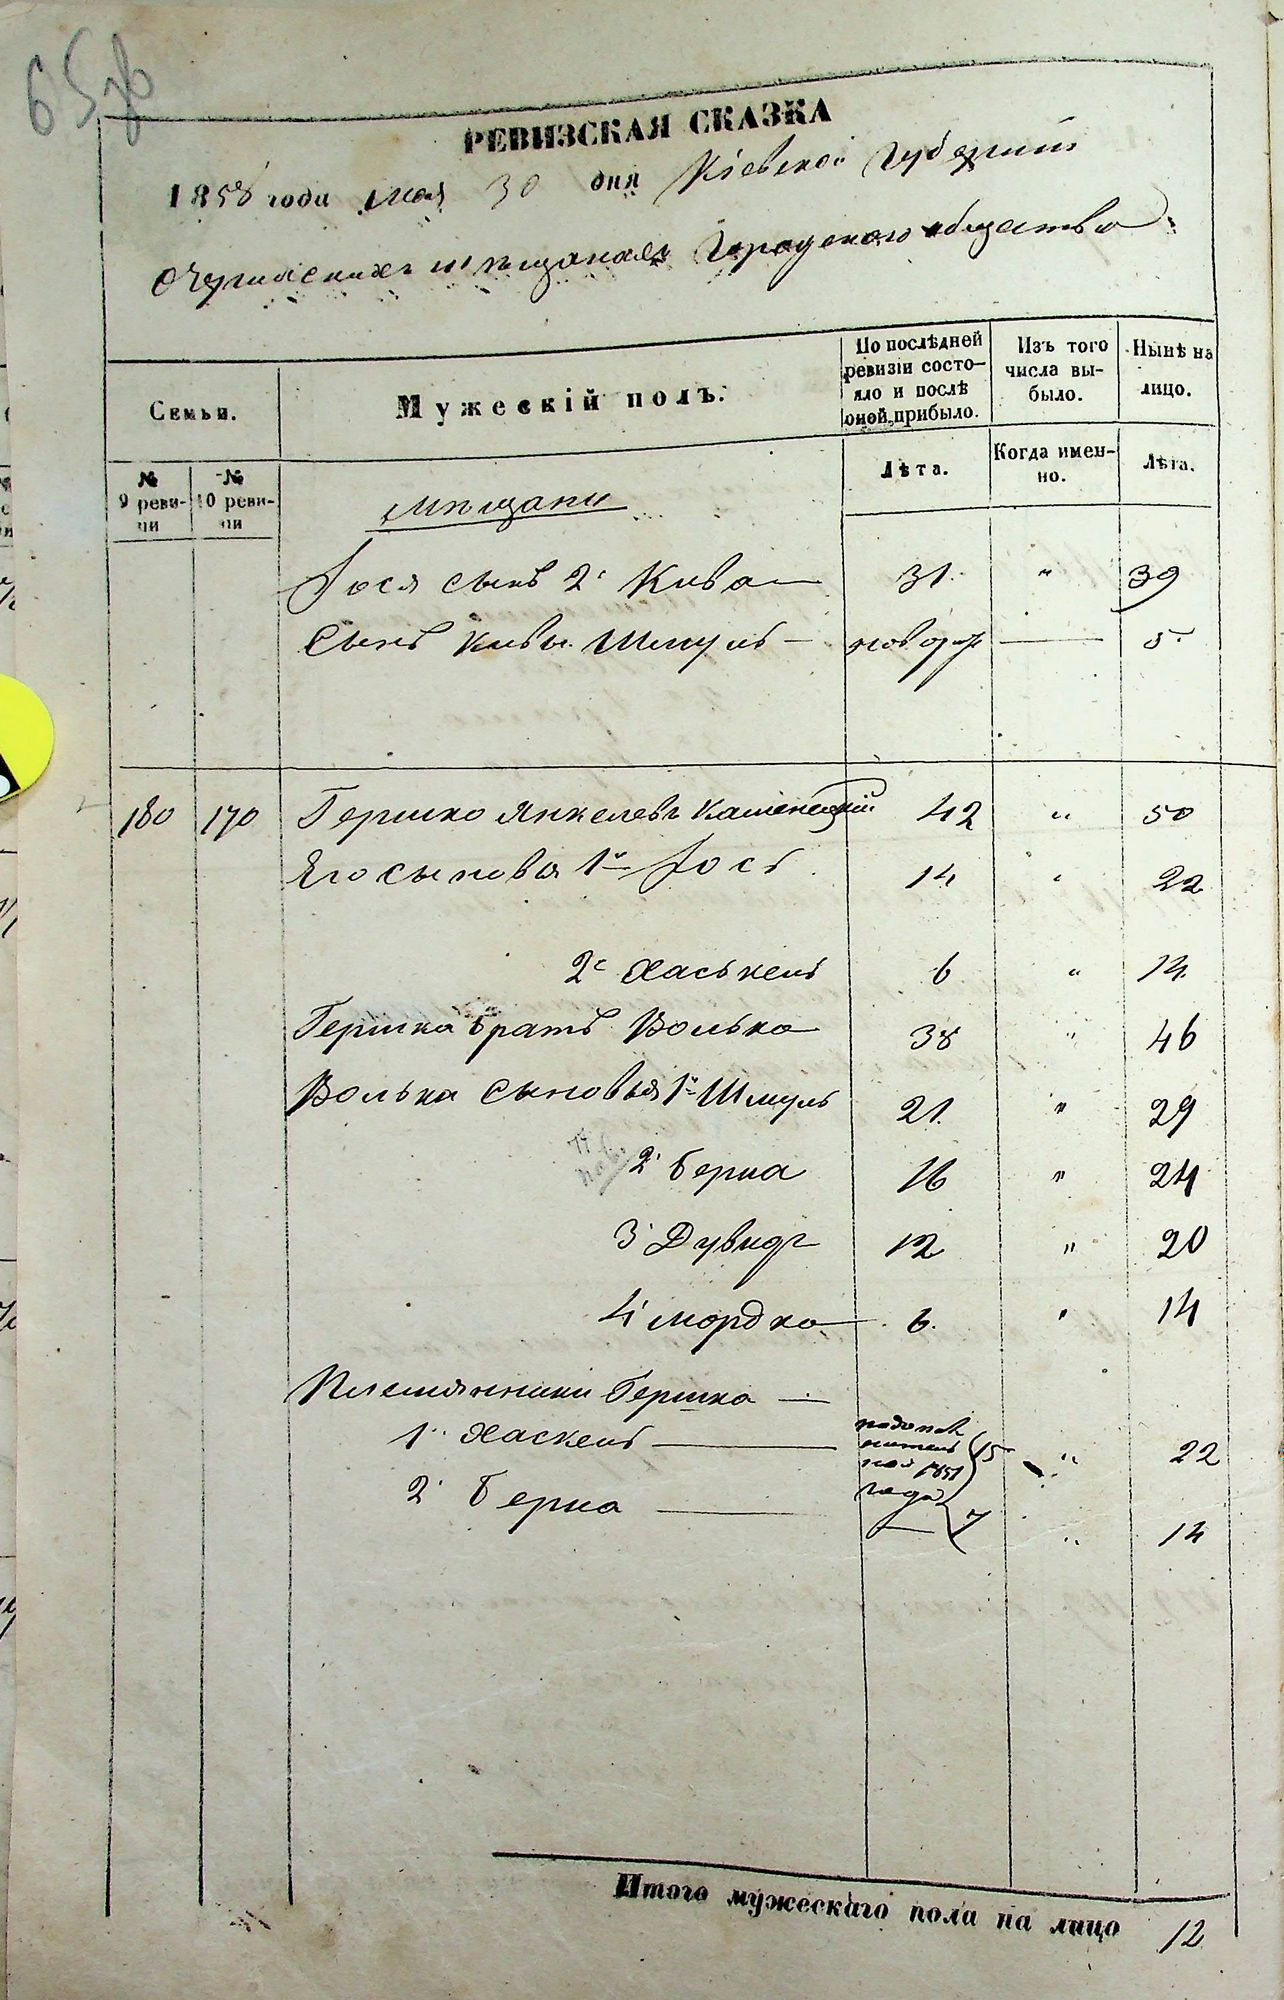 65зв
РЕВИЗСКАЯ СКАЗКА
1858 года мая 30 дня Кіевской Губерніи
о Чугиискихъ мѣщанахъ Городскаго общества
Семьи.
Мужескій полъ.
По послѣдней ревизіи состо-
яло и послѣ
оной прибыло.
Изъ того
числа вы-
было.
Нынѣ на
лицо.
№
9 реви-
зіи
№
10 реви-
зіи
Лѣта.
Когда имен-
но.
Лѣта.
мѣщани
Іося сынъ 2й Кива 31 " 39
Сынъ Кивы Шмуль новорж 5
180 170 Гершко Янкелевъ Каменецкій 42 " 50
Его сыновья 1й Іось 14 " 22
2й Хаськель 6 " 14
Гершка братъ Волько 38 " 46
Волька сыновья 1й Шмуль 21 " 29
2й Берка 16 " 24
3й Дувидъ 12 " 20
4й Мордко 6 " 14
Племянники Гершка
1й Хаскель по дополнительной 1851 года 15 " 22
2й Берко 7 " 14
Итого мужескаго пола на лицо 12